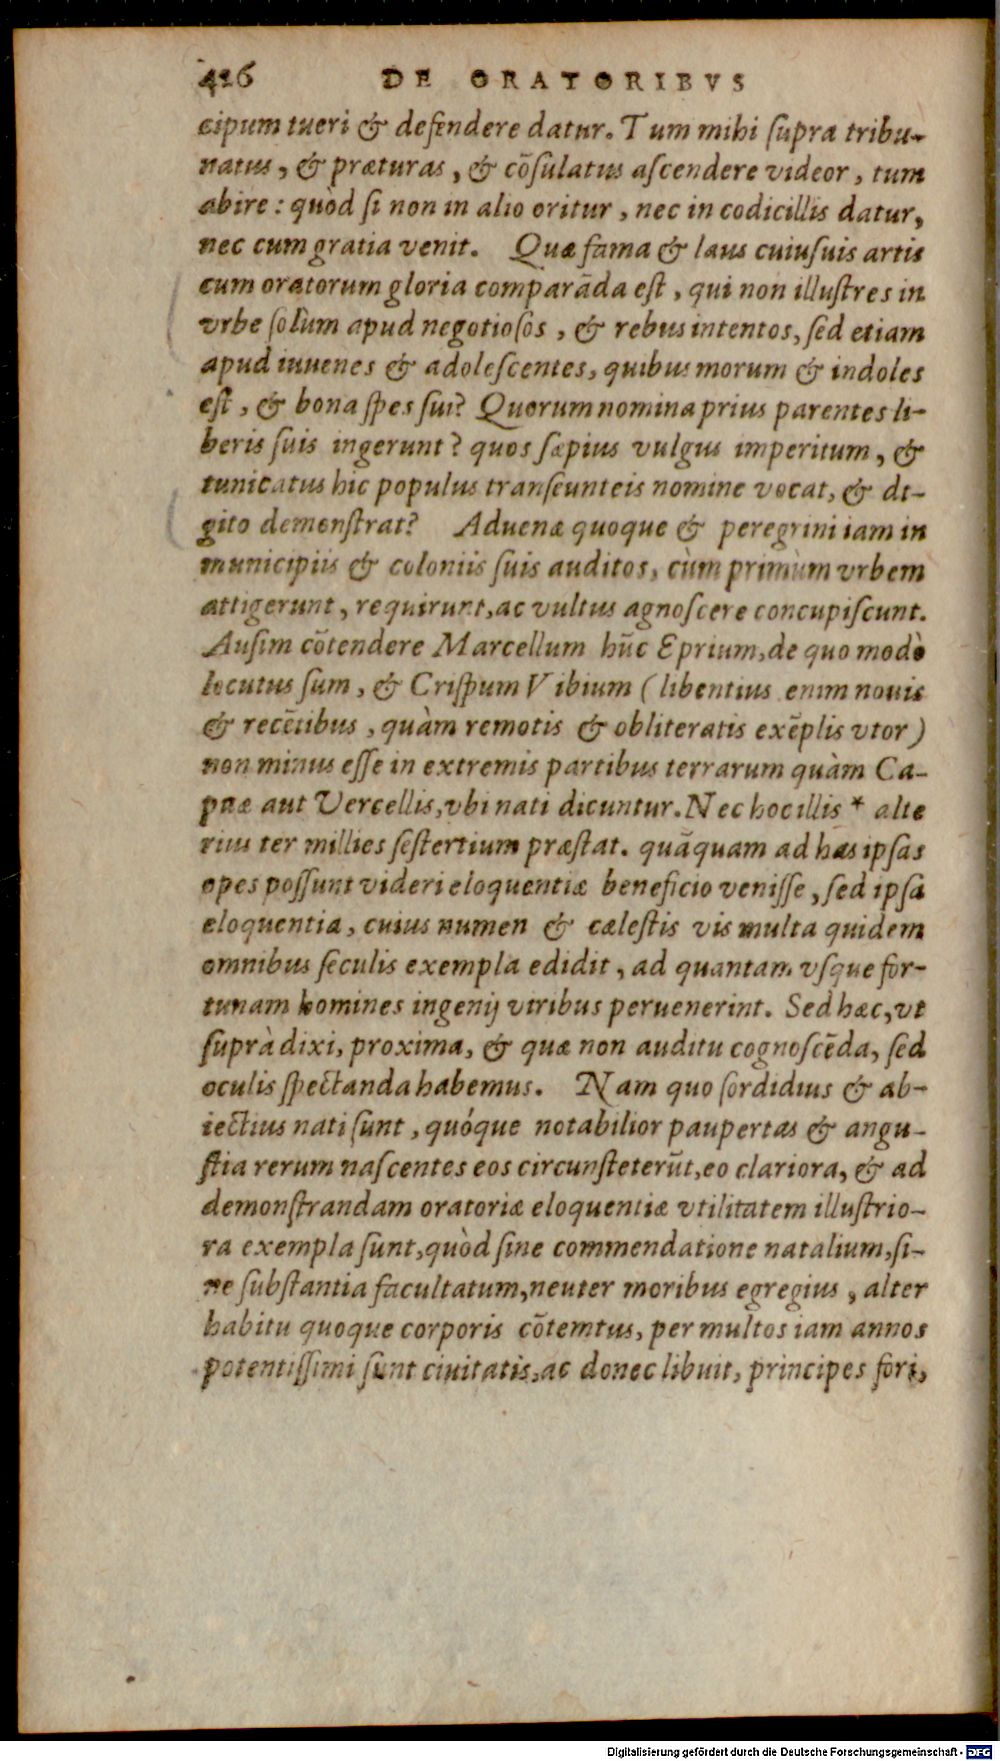 426 DE ORATORIBVS
cipum tueri & defendere datur. Tum mihi ſupra tribu-
natus, & præturas, & cōſulatus aſcendere videor, tum
abire: quòd ſi non in alio oritur, nec in codicillis datur,
nec cum gratia venit. Quæ fama & laus cuiuſuis artis
cum oratorum gloria comparāda eſt, qui non illuſtres in
vrbe ſolùm apud negotioſos, & rebus intentos, ſed etiam
apud iuuenes & adoleſcentes, quibus morum & indoles
eſt, & bona ſpes ſui? Quorum nomina prius parentes li-
beris ſuis ingerunt? quos ſæpius vulgus imperitum, &
tunicatus hic populus tranſeunteis nomine vocat, & di-
gito demonſtrat? Aduenæ quoque & peregrini iam in
municipiis & coloniis ſuis auditos, cùm primùm vrbem
attigerunt, requirunt, ac vultus agnoſcere concupiſcunt.
Auſim cōtendere Marcellum hūc Eprium, de quo modò
locutus ſum, & Criſpum Vibium (libentius enim nouis
& recētibus, quàm remotis & obliteratis exēplis vtor)
non minus eſſe in extremis partibus terrarum quàm Ca-
puæ aut Vercellis, vbi nati dicuntur. Nec hoc illis * alte
rius ter millies ſeſtertium præſtat. quāquam ad has ipſas
opes poſſunt videri eloquentiæ beneficio veniſſe, ſed ipſa
eloquentia, cuius numen & cæleſtis vis multa quidem
omnibus ſeculis exempla edidit, ad quantam vſque for-
tunam homines ingenij viribus peruenerint. Sed hæc, vt
ſuprà dixi, proxima, & quæ non auditu cognoſcēda, ſed
oculis ſpectanda habemus. Nam quo ſordidius & ab-
iectius nati ſunt, quóque notabilior paupertas & angu-
ſtia rerum naſcentes eos circunſteterūt, eo clariora, & ad
demonſtrandam oratoriæ eloquentiæ vtilitatem illuſtrio-
ra exempla ſunt, quòd ſine commendatione natalium, ſi-
ne ſubſtantia facultatum, neuter moribus egregius, alter
habitu quoque corporis cōtemtus, per multos iam annos
potentiſſimi ſunt ciuitatis, ac donec libuit, principes fori,
Digitalisierung gefördert durch die Deutsche Forschungsgemeinschaft - DFG